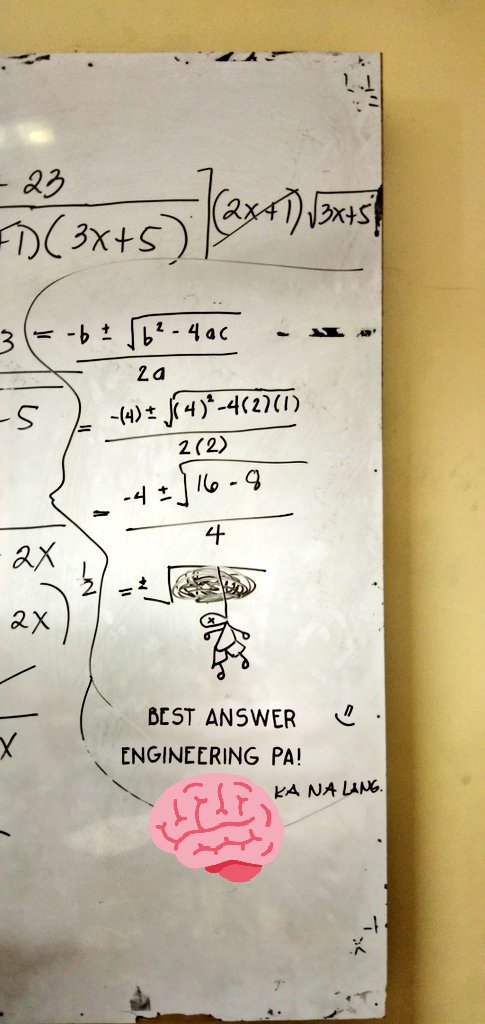 - 23
+1)(3x+5) ] (2x+1) √3x+5
3 = -b ± √b² - 4ac
2a
-5 = -(4) ± √(4)² -4(2)(1)
2(2)
= -4 ± √16 - 8
4
2x
2x) ½ = ± √
x
BEST ANSWER
ENGINEERING PA!
KA NA LANG.
x⁻¹